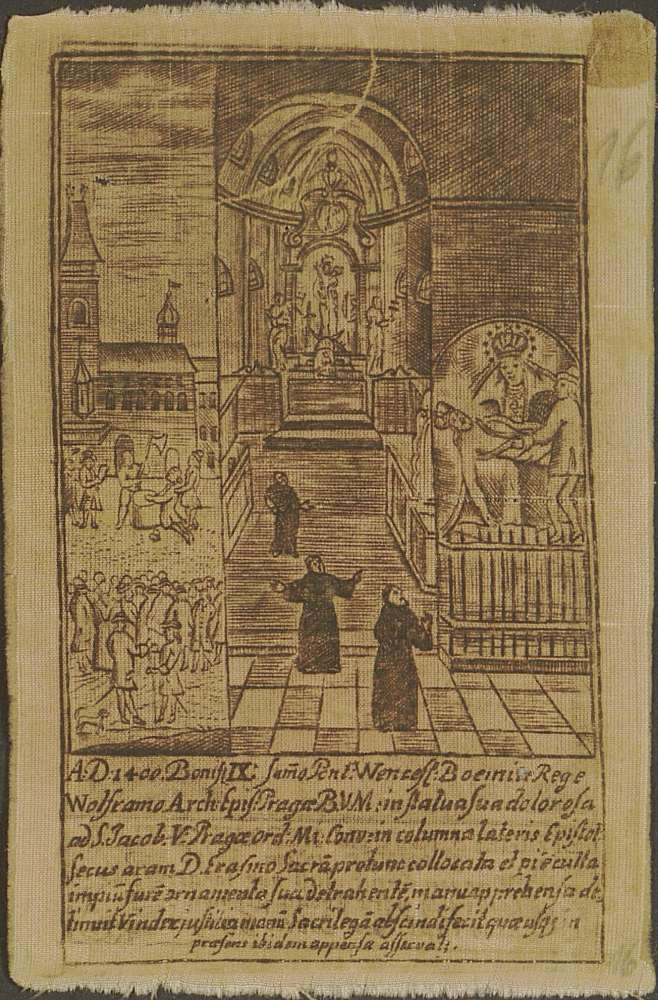 A.D. 1400. Bonif: IX: Sum̃o Pont: Wencesl: Boemiæ Rege
Wolframo Arch Epis: Pragæ B.V.M: in statua sua dolorosa
ad S. Jacob. V. Pragæ ord: Mi. Conv: in columna lateris Epistol
secus aram D. Erasmo Sacrã protunc collocata et piè culta
impiũ furẽ ornamenta sua detrahentẽ, manu apprehensa de
tinuit Vindex justitia manũ Sacrilegã abscindi fecit quæ usq; in
præsens ibidem appensa asservat:.
16
16